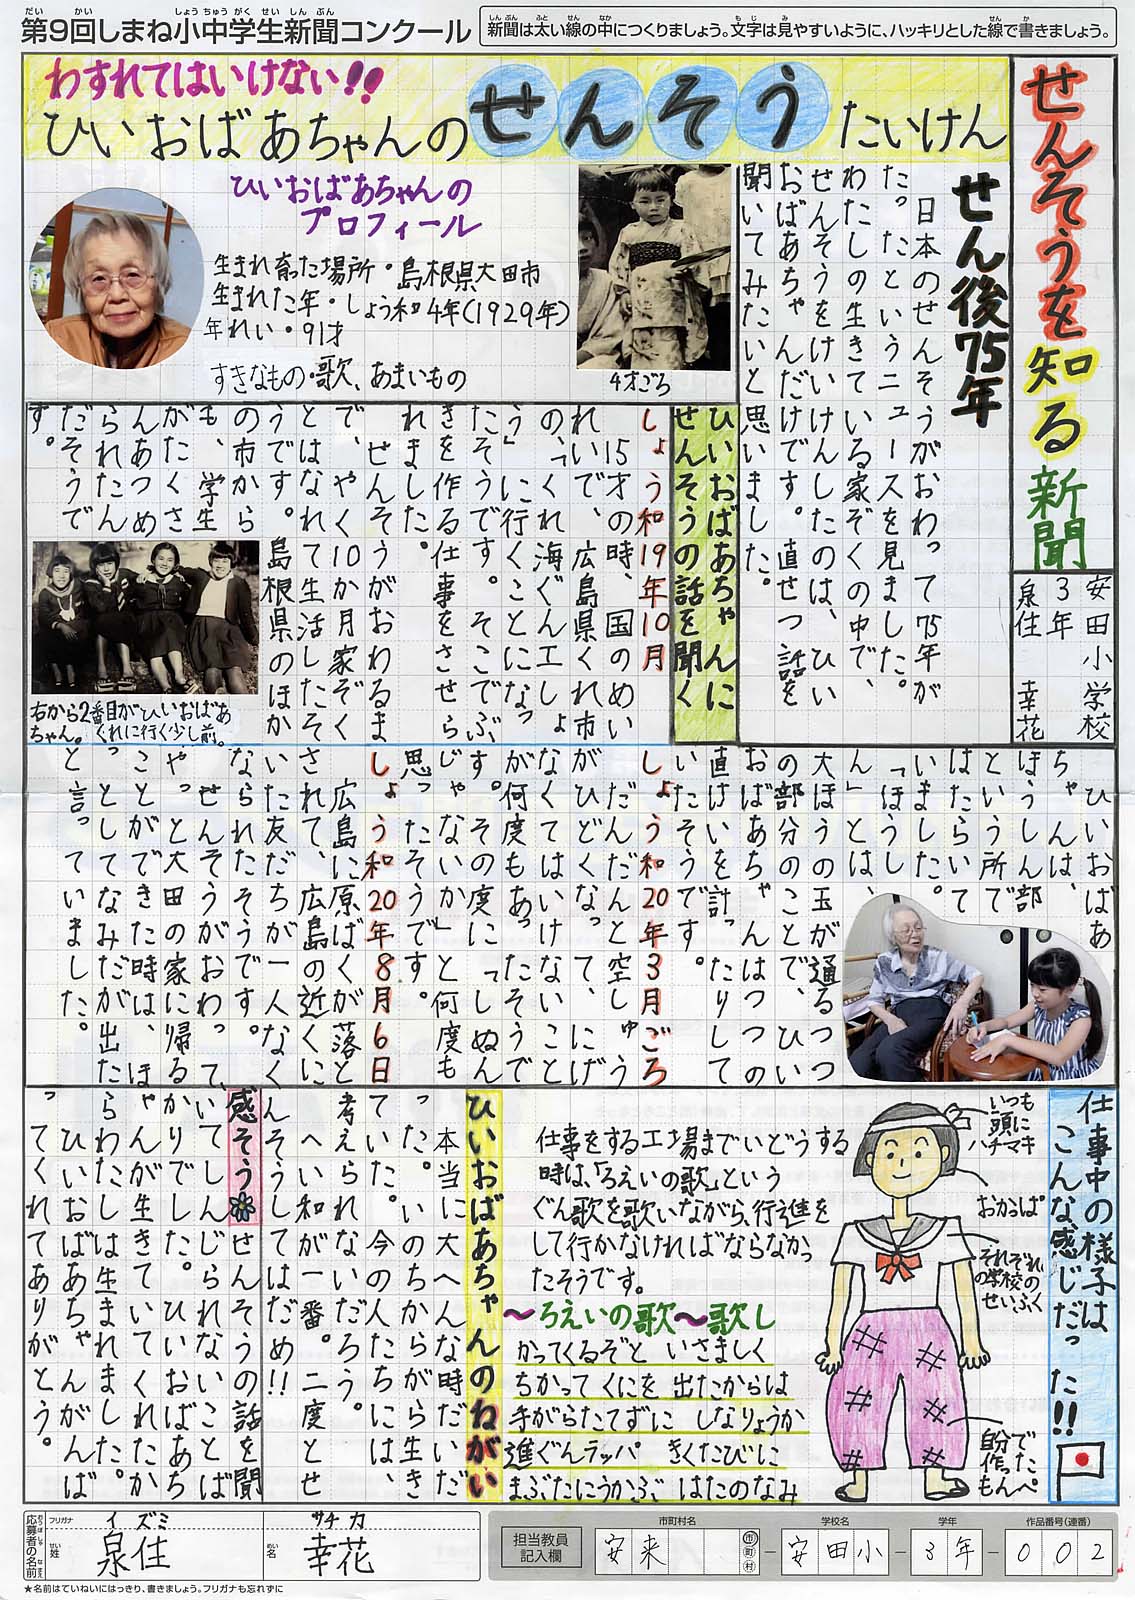 第9回しまね小中学生新聞コンクール
新聞は太い線の中につくりましょう。文字は見やすいように、ハッキリとした線で書きましょう。
せんそうを知る新聞
安田小学校
3年
泉住 幸花
わすれてはいけない!!
ひいおばあちゃんのせんそうたいけん
せん後75年
日本のせんそうがおわって75年が
たったというニュースを見ました。
わたしの生きている家ぞくの中で、
せんそうをけいけんしたのは、ひい
おばあちゃんだけです。直せつ話を
聞いてみたいと思いました。
ひいおばあちゃんの
プロフィール
生まれ育った場所・島根県大田市
生まれた年・しょう和4年(1929年)
年れい・91才
すきなもの・歌、あまいもの
4才ごろ
ひいおばあちゃんに
せんそうの話を聞く
しょう和19年10月
15才の時、国のめい
れいで、広島県くれ市
の、「くれ海ぐん工しょ
う」に行くことになっ
たそうです。そこでぶ
きを作る仕事をさせら
れました。
せんそうがおわるま
で、やく10か月家ぞく
とはなれて生活したそ
うです。島根県のほか
の市から
も、学生
がたくさ
んあつめ
られたん
だそうで
す。
右から2番目がひいおばあ
ちゃん。くれに行く少し前。
ひいおばあ
ちゃんは、
ほうしん部
という所で
はたらいて
いました。
「ほうし
ん」とは、
大ほうの玉が通るつつ
の部分のことで、ひい
おばあちゃんはつつの
直けいを計ったりして
いたそうです。
しょう和20年3月ごろ
だんだんと空しゅう
がひどくなって、にげ
なくてはいけないこと
が何度もあったそうで
す。その度に「しぬん
じゃないか」と何度も
思ったそうです。
しょう和20年8月6日
広島に原ばくが落と
されて、広島の近くに
いた友だちが一人なく
なられたそうです。
せんそうがおわって、
やっと大田の家に帰る
ことができた時は、ほ
っとしてなみだが出た
と言っていました。
仕事中の様子は
こんな感じだった!!
いつも
頭に
ハチマキ
おかっぱ
それぞれ
の学校の
せいふく
自分で
作った
もんぺ
仕事をする工場までいどうする
時は、「ろえいの歌」という
ぐん歌を歌いながら、行進を
して行かなければならなかっ
たそうです。
〜ろえいの歌〜歌し
かってくるぞと いさましく
ちかって くにを 出たからは
手がらたてずに しなりょうか
進ぐんラッパ きくたびに
まぶたにうかぶ はたのなみ
ひいおばあちゃんのねがい
本当に大へんな時だいだ
った。いのちからがら生き
ていた。今の人たちには、
考えられないだろう。
へい和が一番。二度とせ
んそうしてはだめ!!
感そう
せんそうの話を聞
いてしんじられないことば
かりでした。ひいおばあち
ゃんが生きていてくれたか
らわたしは生まれました。
ひいおばあちゃんがんば
ってくれてありがとう。
応募者の名前
フリガナ イズミ
姓 泉住
サチカ
名 幸花
★名前はていねいにはっきり、書きましょう。フリガナも忘れずに
担当教員
記入欄
市町村名 学校名 学年 作品番号(連番)
安来 市町村 - 安田小 - 3年 - 002